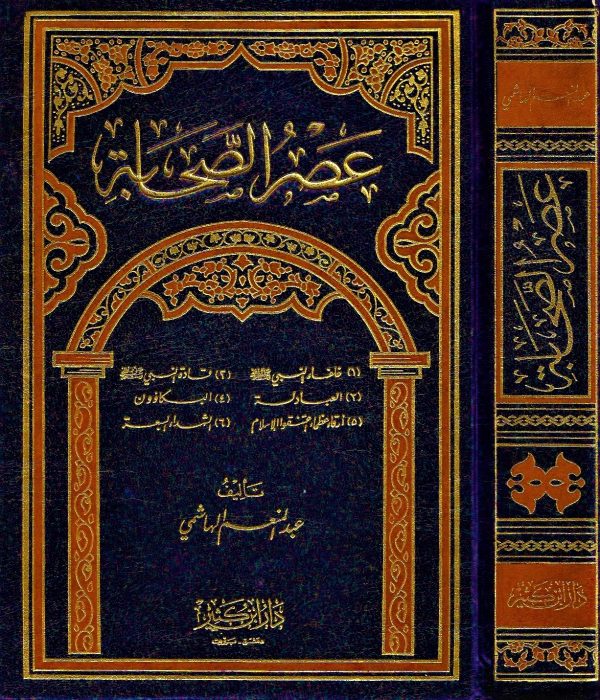 عَصْرُ الصَّحَابَةِ
(١) خلفاء النبي ﷺ (٢) قادة النبي ﷺ
(٣) العبادلة (٤) البكاؤون
(٥) أرقاء عظماء الإسلام (٦) الشهداء السبعة
تأليف
عبد المنعم الهاشمي
دار ابن كثير
دمشق - بيروت
عبد المنعم الهاشمي
عَصْرُ الصَّحَابَةِ
دار ابن كثير